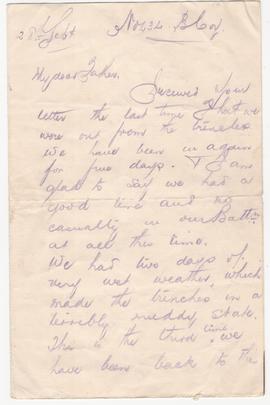 28th Sept No 34 B Coy
My dear Father.
Received your
letter the last time that we
were out from the trenches
We have been in again
for five days. I am
glad to say we had a
good time and no
casualty in our Battn
at all this time.
We had two days of
very wet weather, which
made the trenches in a
terribly muddy state.
This is the third time we
have been back to the